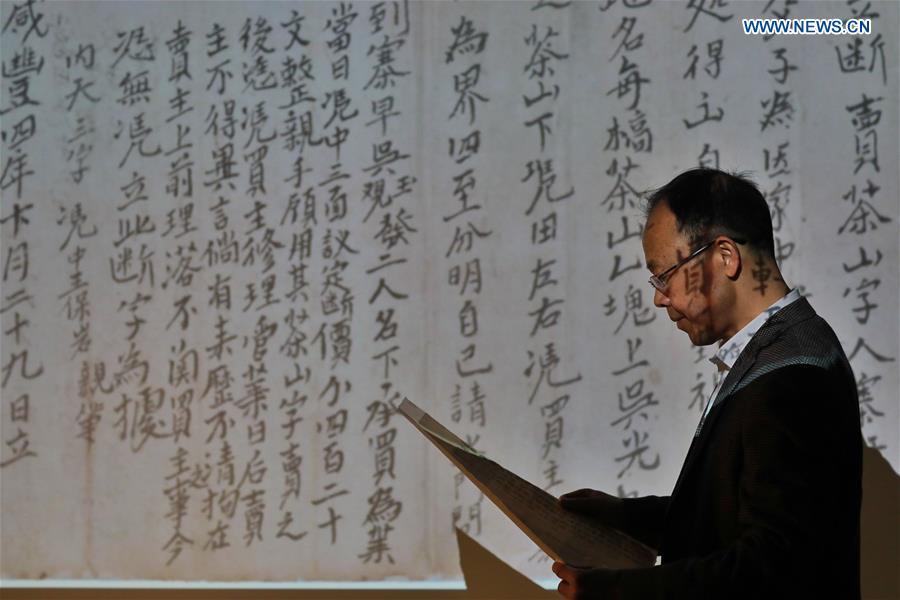 WWW.NEWS.CN
斷賣茶山字人寨
子為因家中
處得
地名每槁茶山一塊上吳光
茶山下凴田左右凴買主
為界四至分明自己請中門問
到寨早吳觀玉發二人名下承買為業
當日凴中三面議定斷價四百二十
文整親手領用其茶山字賣之
後凴買主修理管業日后賣
主不得異言倘有来歷不清拘在
賣主上前理落不関買主事今
恐無凴立此斷字為據
内天三字 凴中主保岩 親筆
咸豐四年十月二十九日立